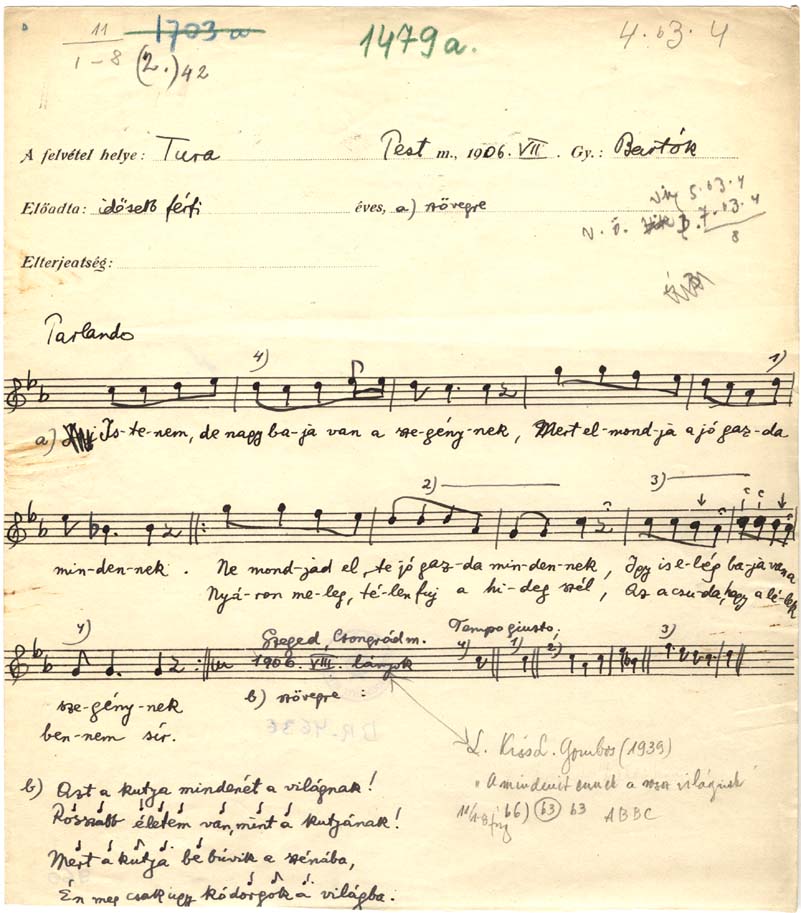 11 1703 a 1479a. 4. b3. 4
1-8 (2.) 42
A felvétel helye: Tura Pest m., 1906. VII. Gy.: Bartók
Előadta: idősebb férfi éves, a) szövegre 5. b3. 4
7. b3. 4
8
Elterjedtség:
Parlando
4) 1)
a) Is-te-nem, de nagy ba-ja van a sze-gény-nek, Mert el-mond-ja a jó gaz-da
2) 3)
min-den-nek. Ne mond-jad el, te jó gaz-da min-den-nek, Igy is e-lég ba-ja van a
Nyá-ron me-leg, té-len fuj a hi-deg szél, Az a csu-da, hogy a lé-lek
4) Szeged, Csongrád m. Tempo giusto;
1906. VIII. lányok 4) 1) 2) 3)
sze-gény-nek b) szövegre :
ben-nem sír.
L. Kiss L. Gombos (1939)
"A mindenit ennek a világnak"
b) Azt a kutya mindenét a világnak! b6) b3 b3 ABBC
Rosszabb életem van, mint a kutyának!
Mert a kutya bebúvik a szénába,
Én meg csak ugy kódorgok a világba.